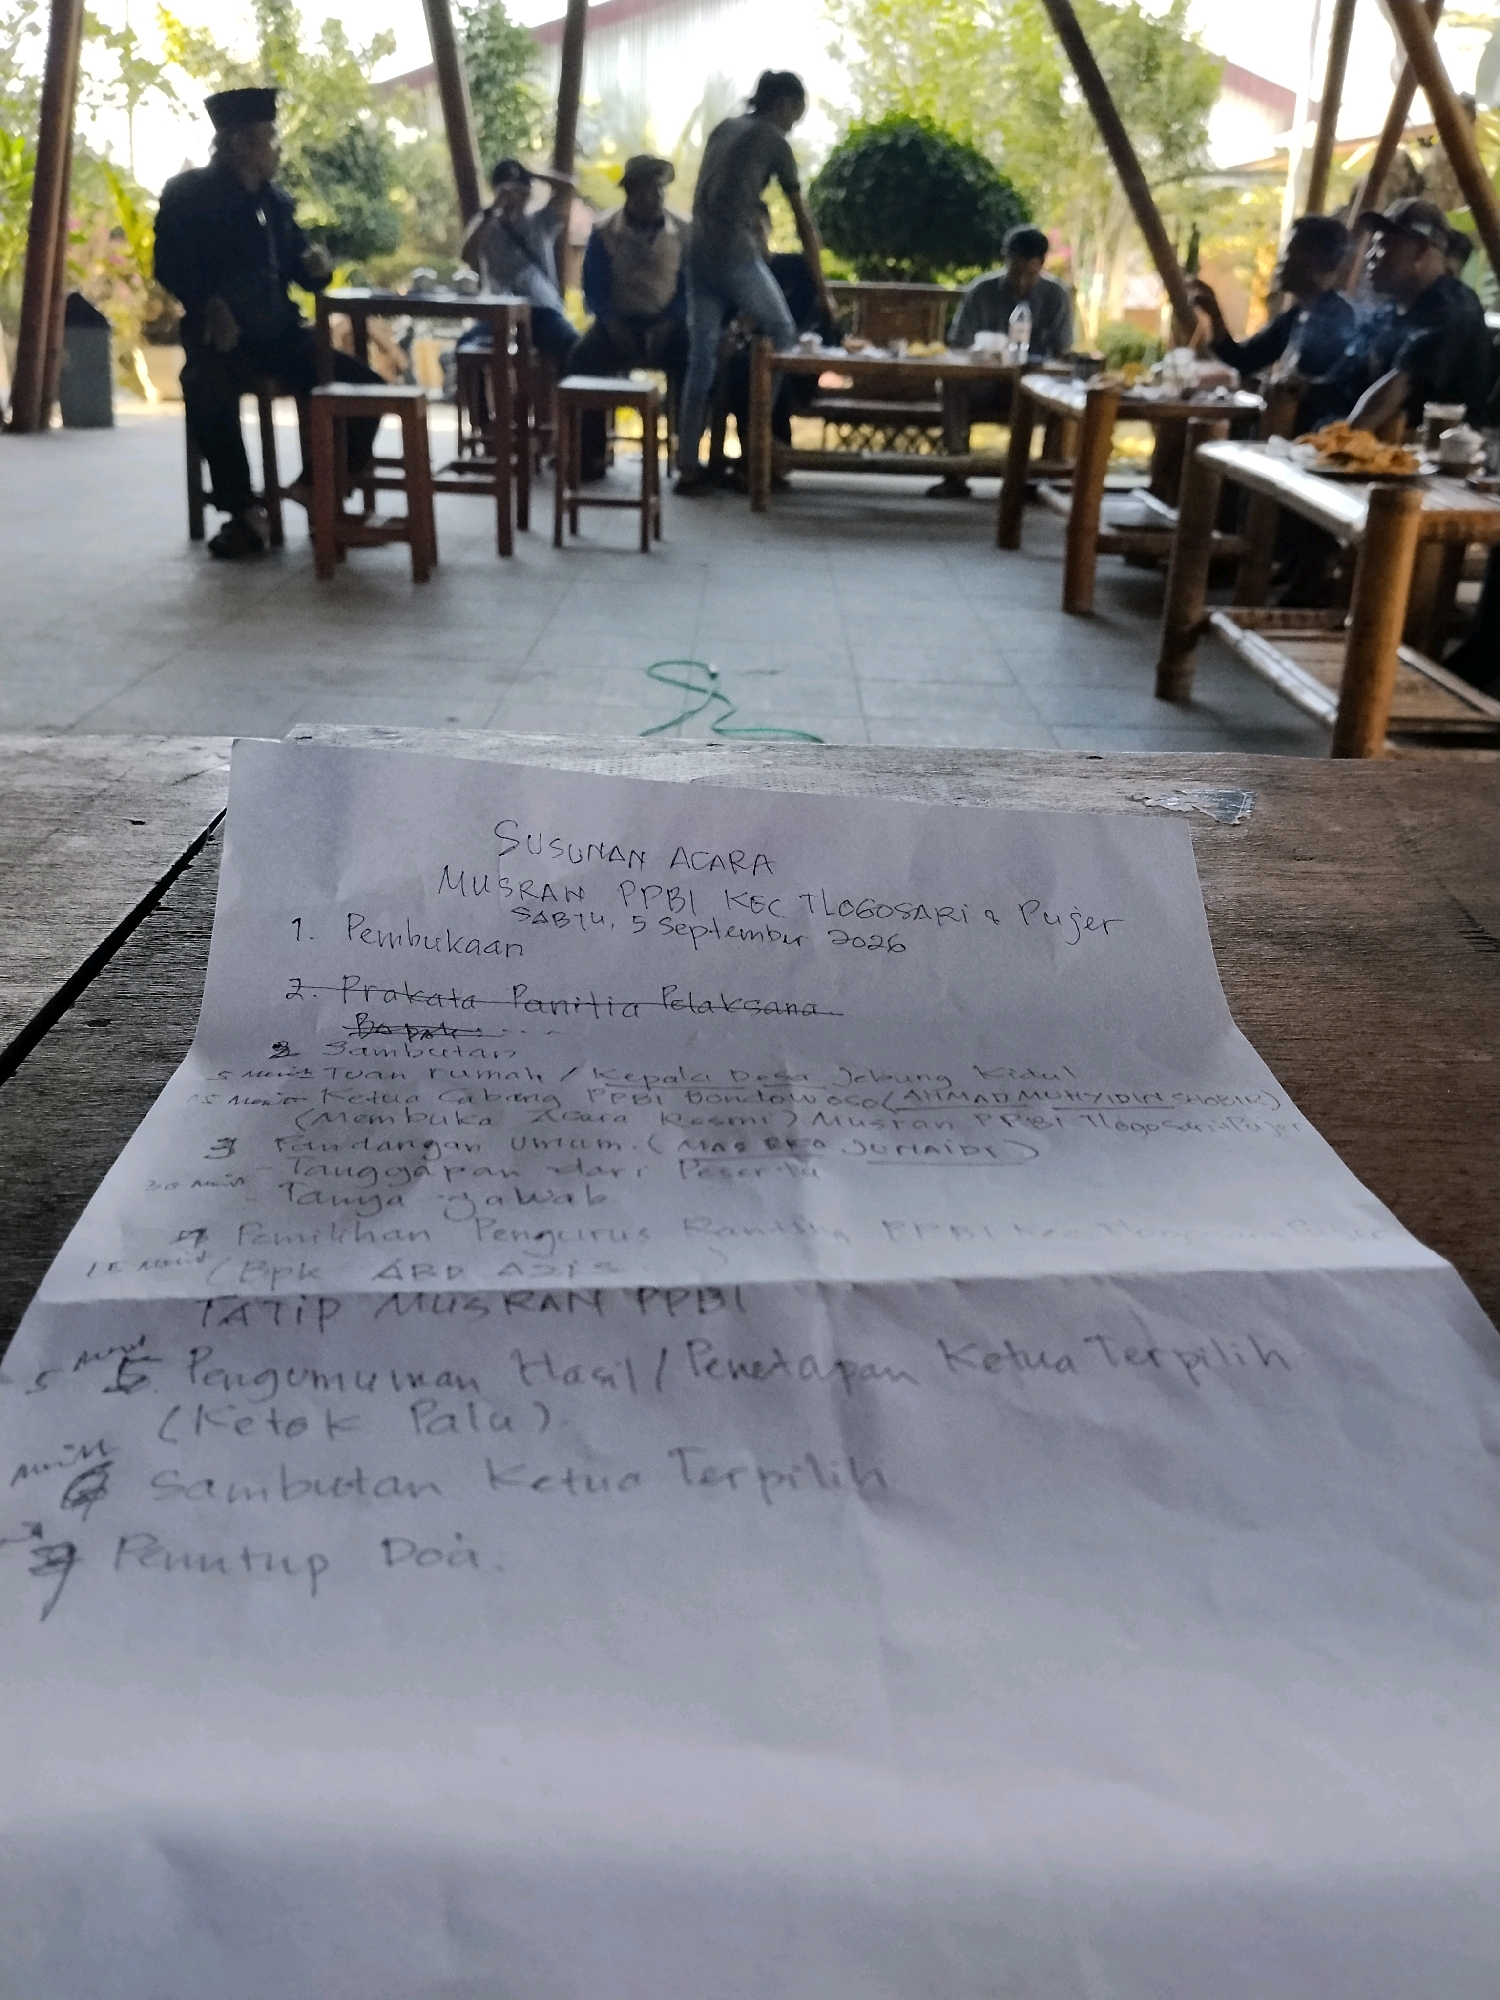 SUSUNAN ACARA
MUSRAN PPBI KEC TLOGOSARI & Pujer
SABTU, 5 September 2026
1. Pembukaan
2. Prakata Panitia Pelaksana
Bapak
2 Sambutan
5 Menit Tuan rumah / Kepala Desa Jebung Kidul
15 Menit Ketua Cabang PPBI Bondowoso (AHMAD MUHYIDIN SHOBIR)
(Membuka Acara Resmi) Musran PPBI Tlogosari & Pujer
3 Pandangan Umum. (MAS EKO JUNAIDI)
- Tanggapan dari Peserta
30 Menit - Tanya jawab
4 Pemilihan Pengurus Ranting PPBI Kec Tlogosari
15 Menit (Bpk ABD AZIS )
TATIP MUSRAN PPBI
5 Menit 5. Pengumuman Hasil / Penetapan Ketua Terpilih
(Ketok Palu)
Menit 6 Sambutan Ketua Terpilih
7 Penutup Doa.